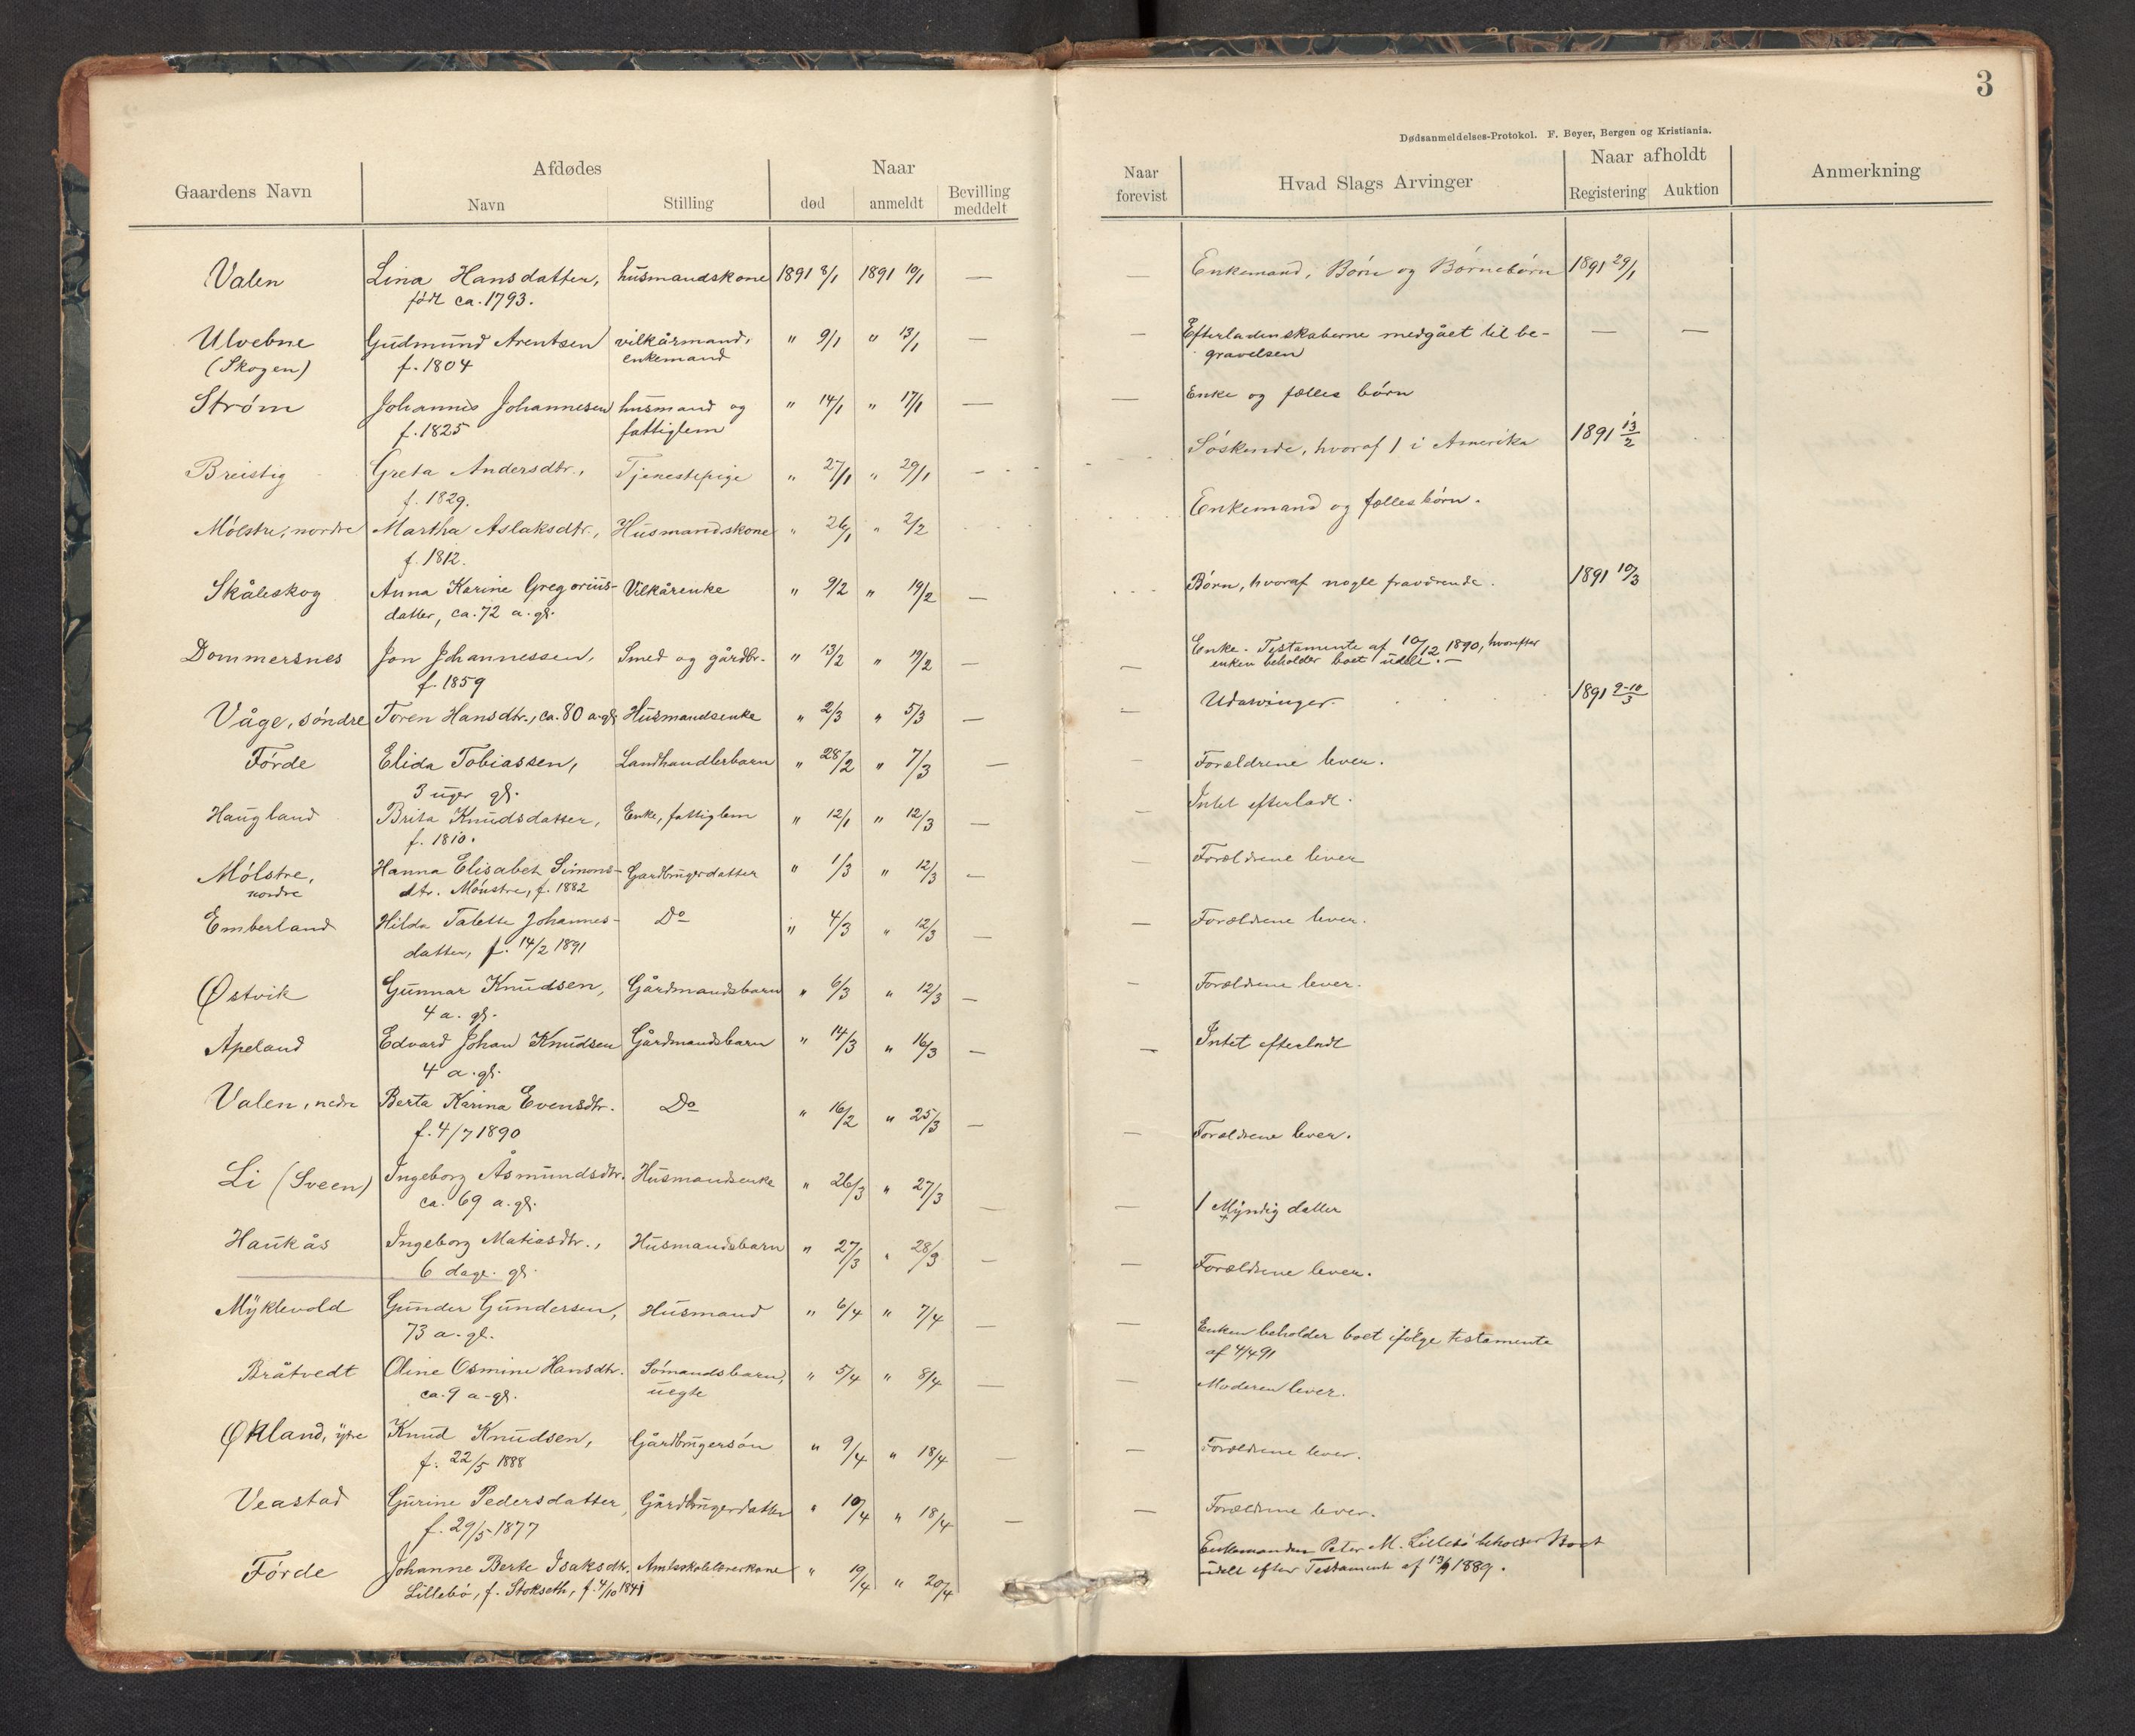 3
Dødsanmeldelses-Protokol. F. Beyer, Bergen og Kristiania.
Gaardens Navn | Afdødes | Naar | Bevilling meddelt | Naar forevist | Hvad Slags Arvinger | Naar afholdt | Anmerkning
Navn | Stilling | død | anmeldt | Registering | Auktion
Valen | Lina Hansdatter, | husmandskone | 1891 8/1 | 1891 10/1 | — | — | Enkemand, Børn og Børnebørn | 1891 29/1
født ca. 1793.
Ulvebne | Gudmund Arentsen | vilkårmand, | " 9/1 | " 13/1 | — | — | Efterladenskaberne medgået til be- | — | —
(Skogen) | f. 1804 | enkemand | gravelsen
Strøm | Johannes Johannesen | husmand og | " 14/1 | " 17/1 | — | — | Enke og fælles børn
f. 1825 | fattiglem
Breistig | Greta Andersdtr., | Tjenestepige | " 27/1 | " 29/1 | — | — | Søskende, hvoraf 1 i Amerika | 1891 13/2
f. 1829.
Mølstre, nordre | Martha Aslaksdtr., | Husmandskone | " 26/1 | " 2/2 | Enkemand og fælles børn.
f. 1812.
Skåleskog | Anna Karine Gregorius- | Vilkårenke | " 9/2 | " 19/2 | — | Børn, hvoraf nogle fraværende. | 1891 10/3
datter, ca. 72 a. gl.
Dommersnes | Jon Johannessen, | Smed og gårdbr. | " 13/2 | " 19/2 | — | — | Enke. Testamente af 10/12 1890, hvorefter
f. 1859 | enken beholder boet udelt. —
Våge, søndre | Toren Hansdtr., ca. 80 a. gl. | Husmandsenke | " 2/3 | " 5/3 | — | — | Udarvinger. | 1891 9-10/3
Førde | Elida Tobiassen, | Landhandlerbarn | " 28/2 | " 7/3 | — | — | Forældrene lever.
3 uger gl.
Haugland | Brita Knudsdatter, | Enke, fattiglem | " 12/1 | " 12/3 | — | — | Intet efterladt.
f. 1810.
Mølstre, | Hanna Elisabet Simons- | Gardbrugerdatter | " 1/3 | " 12/3 | — | — | Forældrene lever
nordre | dtr. Mølstre, f. 1882
Emberland | Hilda Talette Johannes- | Do | " 4/3 | " 12/3 | — | — | Forældrene lever.
datter, f. 14/2 1891
Østvik | Gunnar Knudsen, | Gårdmandsbarn | " 6/3 | " 12/3 | — | — | Forældrene lever.
4 a. gl.
Apeland | Edvard Johan Knudsen | Gårdmandsbarn | " 14/3 | " 16/3 | — | — | Intet efterladt
4 a. gl.
Valen, nedre | Berta Karina Evensdtr. | Do | " 16/2 | " 25/3 | — | — | Forældrene lever.
f. 4/7 1890
Li (Sveen) | Ingeborg Åsmundsdtr. | Husmandsenke | " 26/3 | " 27/3 | — | — | 1 Myndig datter
ca. 69 a. gl.
Haukås | Ingeborg Matiasdtr., | Husmandsbarn | " 27/3 | " 28/3 | — | — | Forældrene lever.
6 dage. gl.
Myklevold | Gunder Gundersen, | Husmand | " 6/4 | " 7/4 | — | — | Enken beholder boet ifølge testamente
73 a. gl. | af 4/4 91
Bråtvedt | Oline Osmine Hansdtr. | Sømandsbarn, | " 5/4 | " 8/4 | — | — | Moderen lever.
ca. 9 a. gl. | uegte
Økland, ytre | Knud Knudsen, | Gårdbrugersøn | " 9/4 | " 18/4 | — | — | Forældrene lever.
f. 22/5 1888
Veastad | Gurine Pedersdatter | Gårdbrugerdatter | " 10/4 | " 18/4 | — | — | Forældrene lever.
f. 29/5 1877
Førde | Johanne Berte Isaksdtr. | Amtsskolelærerkone | " 19/4 | " 20/4 | Enkemanden Peter M. Lillebø beholder Boet
Lillebø, f. Stokseth, f. 4/10 1841 | udelt efter Testamente af 13/9 1889.